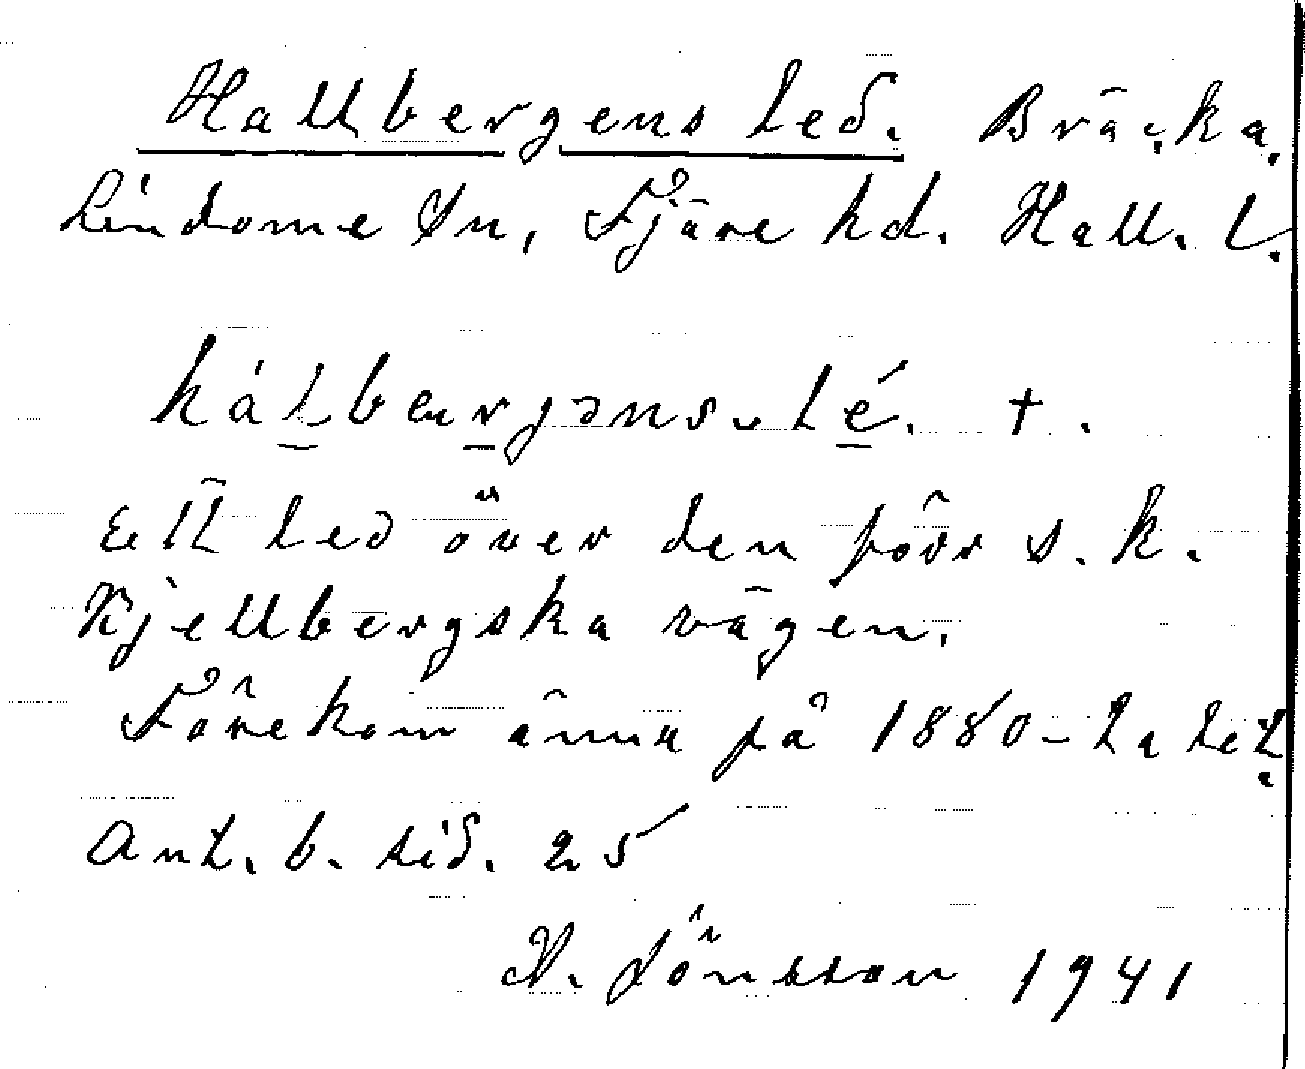 Hallbergens led. Bräcka.
Lindome sn, Fjäre hd. Hall. l.
hálbærjəns-lé. †.
Ett led över den förr s. k.
Kjellbergska vägen.
Förekom ännu på 1880-talet.
Ant. b. sid. 25
V. Jönsson 1941